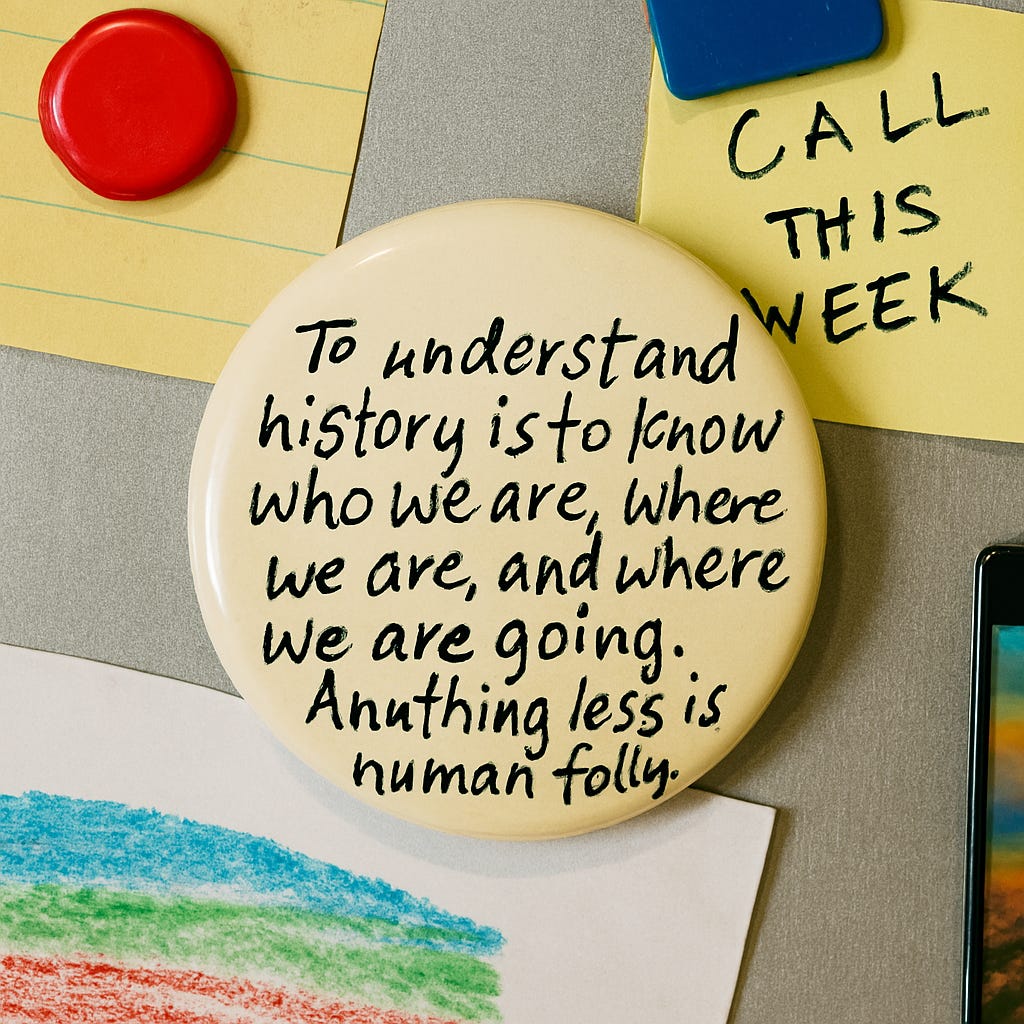 To understand
history is to know
who we are, where
we are, and where
we are going.
Anuthing less is
human folly.
CALL
THIS
WEEK